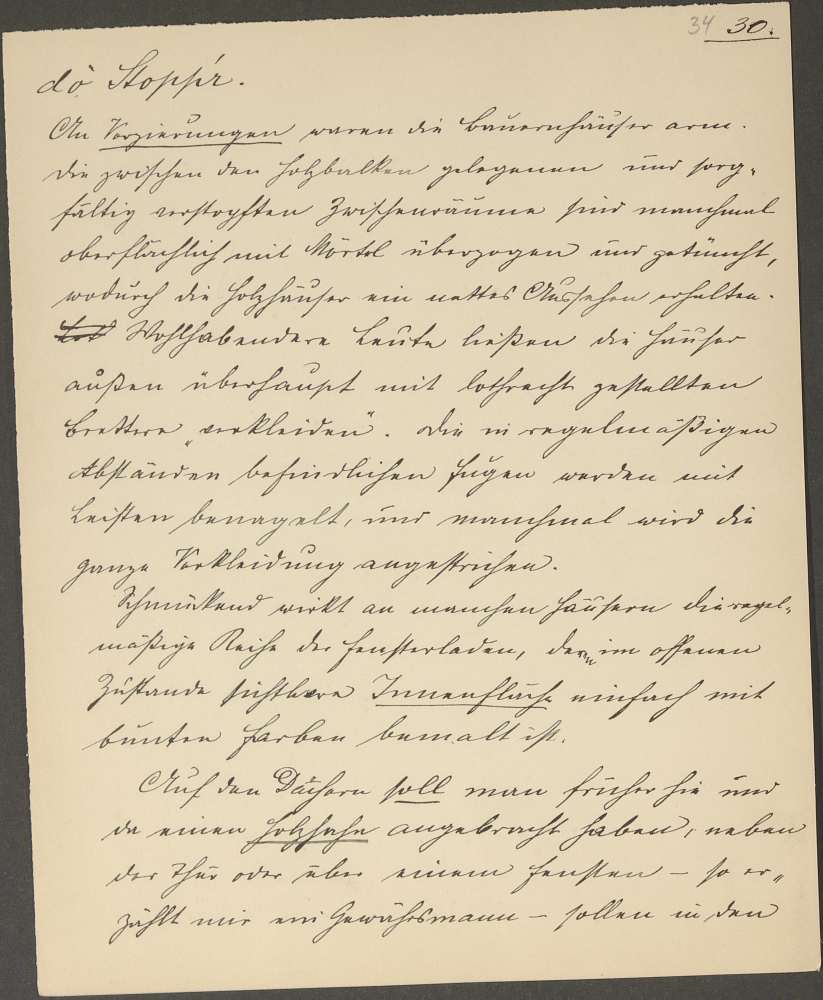 34 30.
dö Stopp'r.
An Verzierungen waren die Bauernhäuser arm.
Die zwischen den Holzbalken gelegenen und sorg-
fältig verstopften Zwischenräume sind manchmal
oberflächlich mit Mörtel überzogen und getüncht,
wodurch die Holzhäuser ein nettes Aussehen erhalten.
Wohlhabendere Leute ließen die Häuser
außen überhaupt mit lothrecht gestellten
Brettern „verkleiden". Die in regelmäßigen
Abständen befindlichen Fugen werden mit
Leisten benagelt, und manchmal wird die
ganze Verkleidung angestrichen.
Schmückend wirkt an manchen Häusern die regel-
mäßige Reihe der Fensterladen, deren im offenen
Zustande sichtbare Innenfläche einfach mit
bunten Farben bemalt ist.
Auf den Dächern soll man früher hie und
da einen Holzhahn angebracht haben, neben
der Thür oder über einem Fenster – so er-
zählt mir ein Gewährsmann – sollen in den